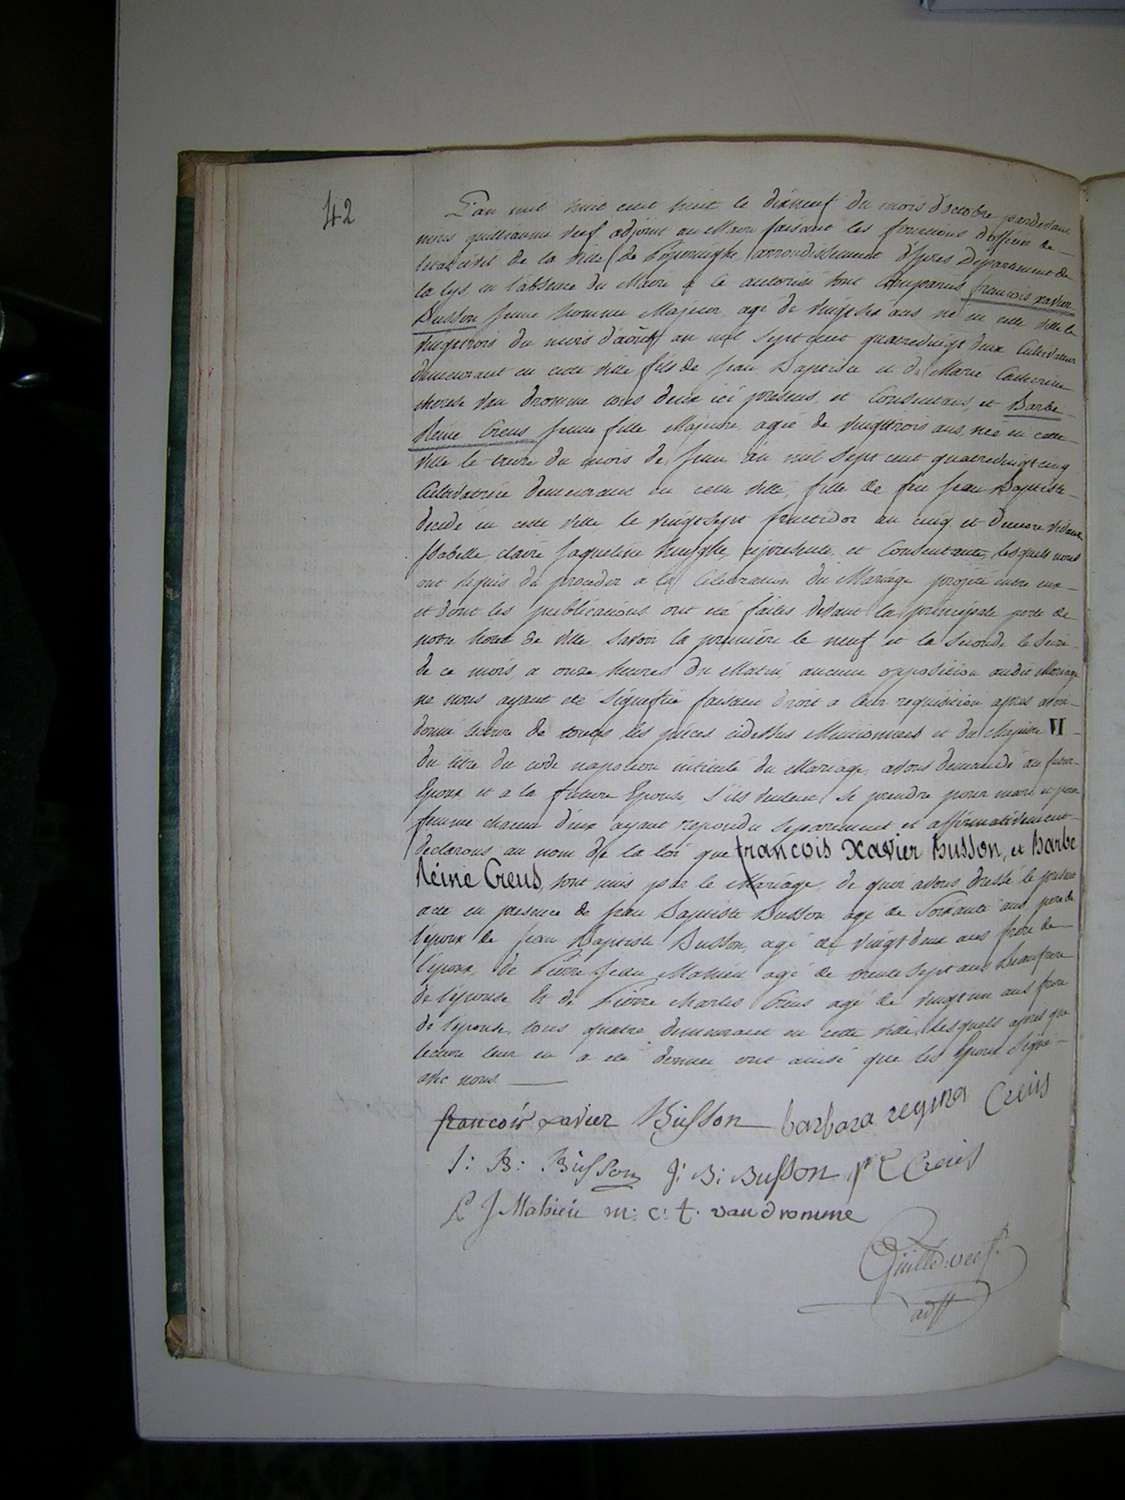 42
L'an mil huit cent huit le dixneuf du mois d'octobre pardevant
nous guillaume Veef adjoint au Maire faisant les fonctions d'officier de
l'état civil de la ville de Poperinghe arrondissement d'ypres Département de
la lys en l'absence du Maire à ce autorisé sont comparus francois xavier
Busson jeune homme Majeur agé de vingtsix ans né en cette ville le
vingttrois du mois d'aout an mil sept cent quatrevingt deux Cultivateur
demeurant en cette ville fils de jean Baptiste et de Marie Catherine
therese van dromme tous deux ici presens et Consentans, et Barbe
Reine Creus jeune fille Majeure agée de vingttrois ans née en cette
ville le treize du mois de juin an mil sept cent quatrevingt cinq
Cultivatrice demeurant en cette ville, fille de feu jean Baptiste
decedé en cette ville le vingtsept fructidor an cinq et d'encore vivante
Isabelle claire jaqueline ci presente et Consentante, lesquels nous
ont requis de proceder a la Celebration du Mariage projeté entre eux
et dont les publications ont été faites devant la principale porte de
notre hotel de ville savoir la première le neuf et la seconde le seize
de ce mois a onze heures du Matin aucune opposition audit Mariage
ne nous ayant été signifiée faisant droit a leur requisition apres avoir
donné lecture de toutes les pièces cidessus Mentionnées et du chapitre VI
du titre du code napoleon intitulé du Mariage, avons demandé au futur
Epoux et a la future Epouse s'ils veulent se prendre pour mari et pour
femme chacun d'eux ayant repondu separement et affirmativement
declarons au nom de la loi que francois xavier Busson, et Barbe
Réine Creus, sont unis par le Mariage, de quoi avons dressé le present
acte en presence de jean Baptiste Busson agé de Soixante ans pere de
l'epoux de jean Baptiste Busson, agé de vingt deux ans frere de
l'epoux, de Pierre jean Mahieu agé de trente sept ans beaufrere
de l'epouse et de Pierre Charles Creus agé de vingt un ans frere
de l'epouse, tous quatre demeurant en cette ville, lesquels apres que
lecture leur en a été donnée ont ainsi que les Epoux Signé
avec nous
francois xavier Busson barbara regina Creus
J: B: Busson J: B: Busson P C Creus
P J Mahieu m: c: t. vandromme
Guille. veef.
adjt